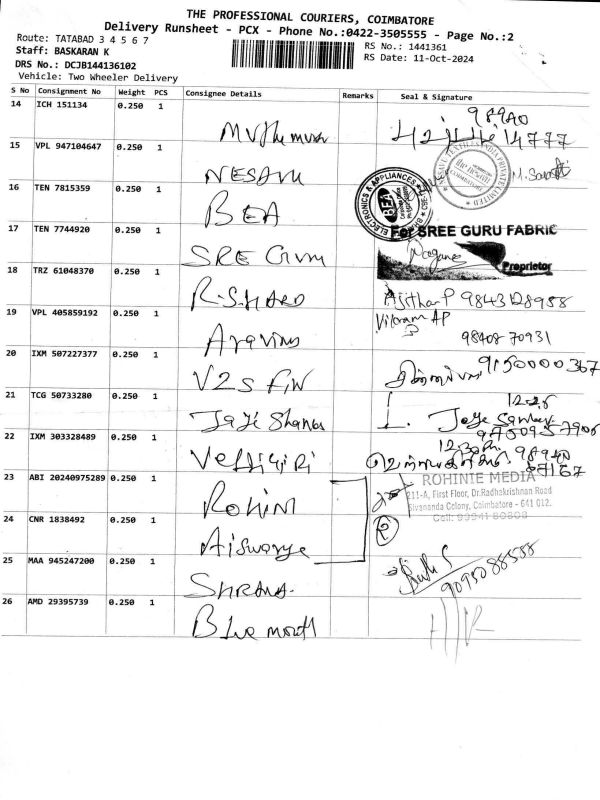 THE PROFESSIONAL COURIERS, COIMBATORE
Delivery Runsheet - PCX - Phone No.:0422-3505555 - Page No.:2
Route: TATABAD 3 4 5 6 7
RS No.: 1441361
Staff: BASKARAN K
RS Date: 11-Oct-2024
DRS No.: DCJB144136102
Vehicle: Two Wheeler Delivery
S No Consignment No Weight PCS Consignee Details Remarks Seal & Signature
14 ICH 151134 0.250 1
15 VPL 947104647 0.250 1 NESAVU
16 TEN 7815359 0.250 1 BEA
ELECTRONICS & APPLIANCES
BEA
17 TEN 7744920 0.250 1 SRE GURU
For SREE GURU FABRIC
Proprietor
18 TRZ 61048370 0.250 1 R.S.HARD
Ajithar P 9843128958
19 VPL 405859192 0.250 1 Aravins
Vikram AP
98408 70931
20 IXM 507227377 0.250 1 V2S FIN
9150000367
21 TCG 50733280 0.250 1 Jaye Shankar
12-25
22 IXM 303328489 0.250 1 Velligiri
12.30
23 ABI 20240975289 0.250 1 ROHINI
ROHINIE MEDIA
211-A, First Floor, Dr.Radhakrishnan Road
Sivananda Colony, Coimbatore - 641 012.
Cell: 93941 80808
24 CNR 1838492 0.250 1 Aiswarya
2
25 MAA 945247200 0.250 1
9095088588
26 AMD 29395739 0.250 1 Blue mount